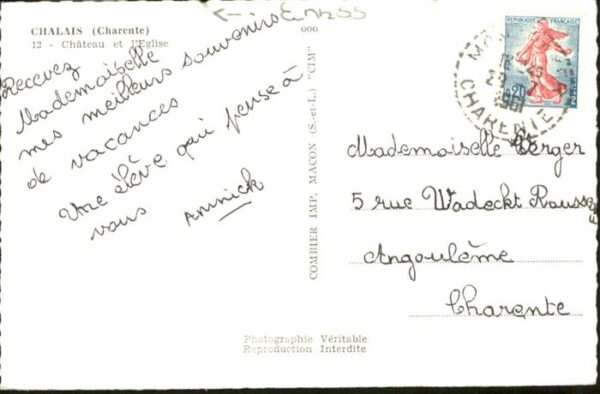 CHALAIS (Charente)
12 - Château et l'Eglise
Recevez
Mademoiselle
mes meilleurs souvenirs
de vacances
Une élève qui pense à
vous
Annick
000
COMBIER IMP. MACON (S.-et-L.) "CIM"
REPUBLIQUE FRANÇAISE
CHARENTE
Mademoiselle Verger
5 rue Wadeckt Rousse
Angoulême
Charente
Photographie Véritable
Reproduction Interdite